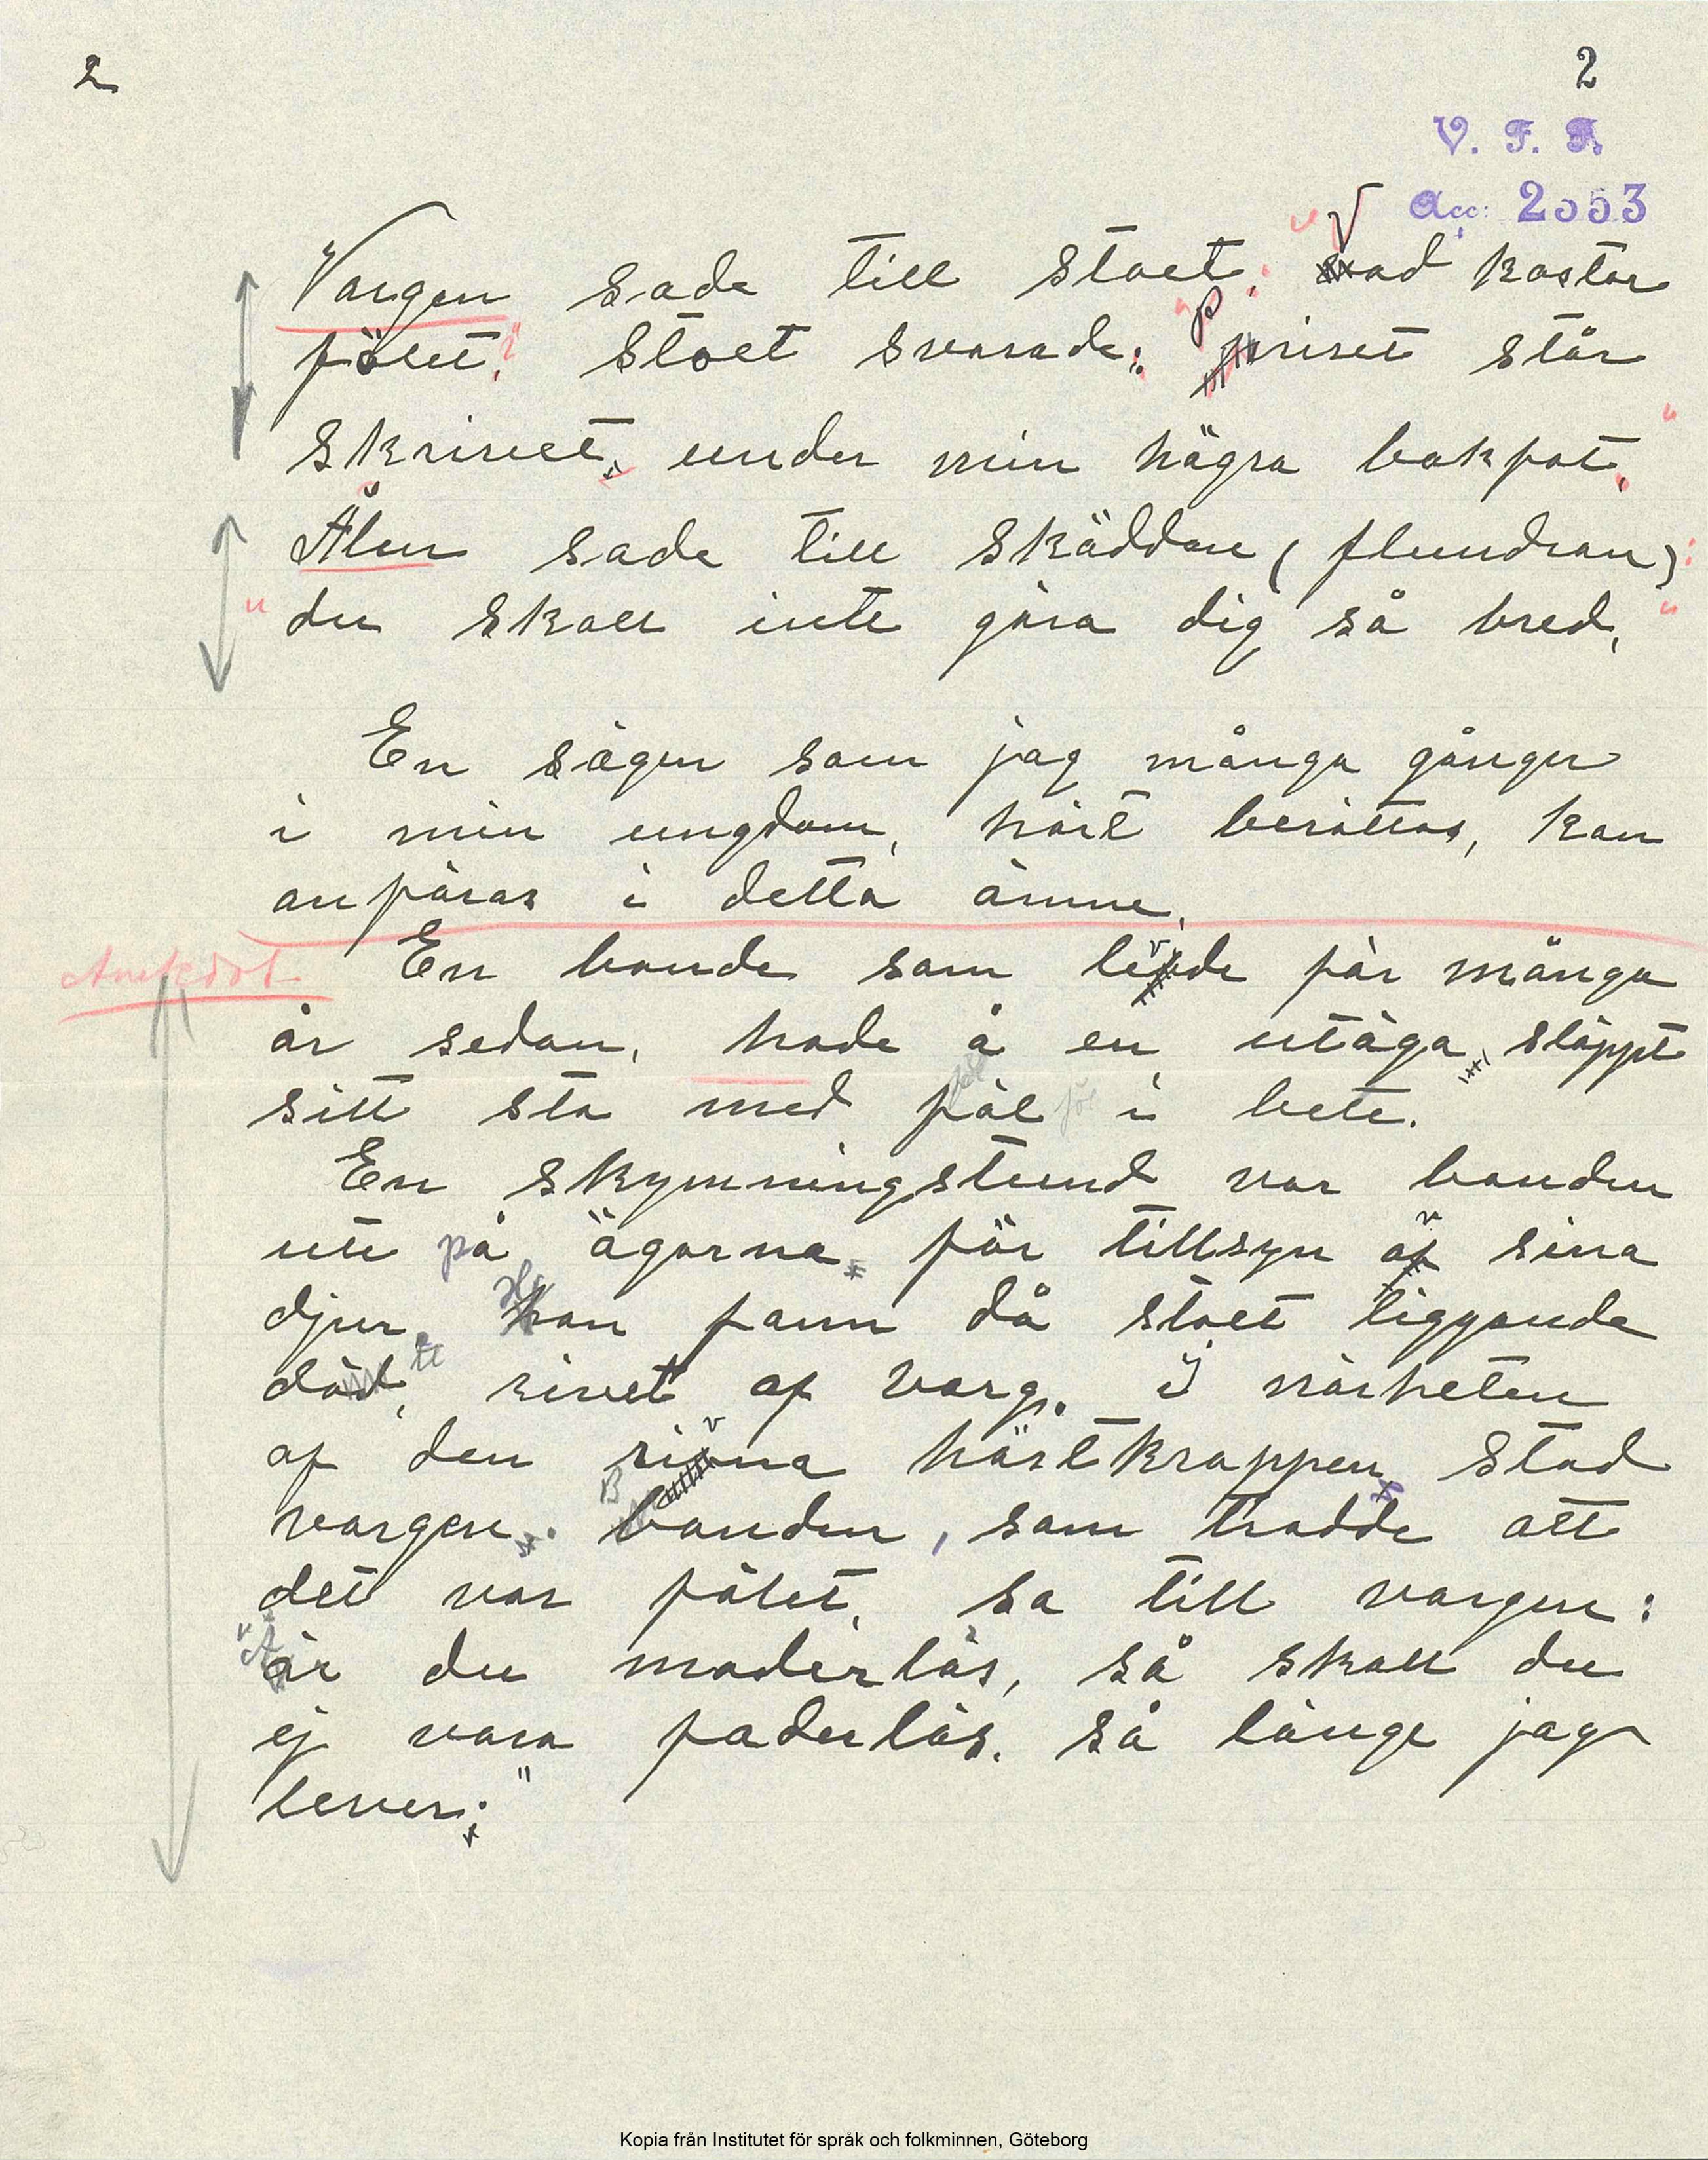 2
2
V. F. F.
Acc: 2553
Vargen sade till stoet: "Vad kostar
fölet?" Stoet svarade: "Priset står
skrivet under min högra bakfot."
Ålen sade till skäddan (flundran):
"du skall inte göra dig så bred."
En sägen som jag många gånger
i min ungdom, hört berättas, kan
anföras i detta ämne.
Anekdot
En bonde som levde för många
år sedan, hade å en utäga släppt
sitt sto med föl i bete.
En skymningstund var bonden
ute på ägorna för tillsyn av sina
djur. Han fann då stoet liggande
dött, rivet af varg. i närheten
af den rivna hästkroppen stod
vargen. Bonden, som trodde att
det var fölet, sa till vargen:
"Är du moderlös, så skall du
ej vara faderlös, så länge jag
lever."
Kopia från Institutet för språk och folkminnen, Göteborg